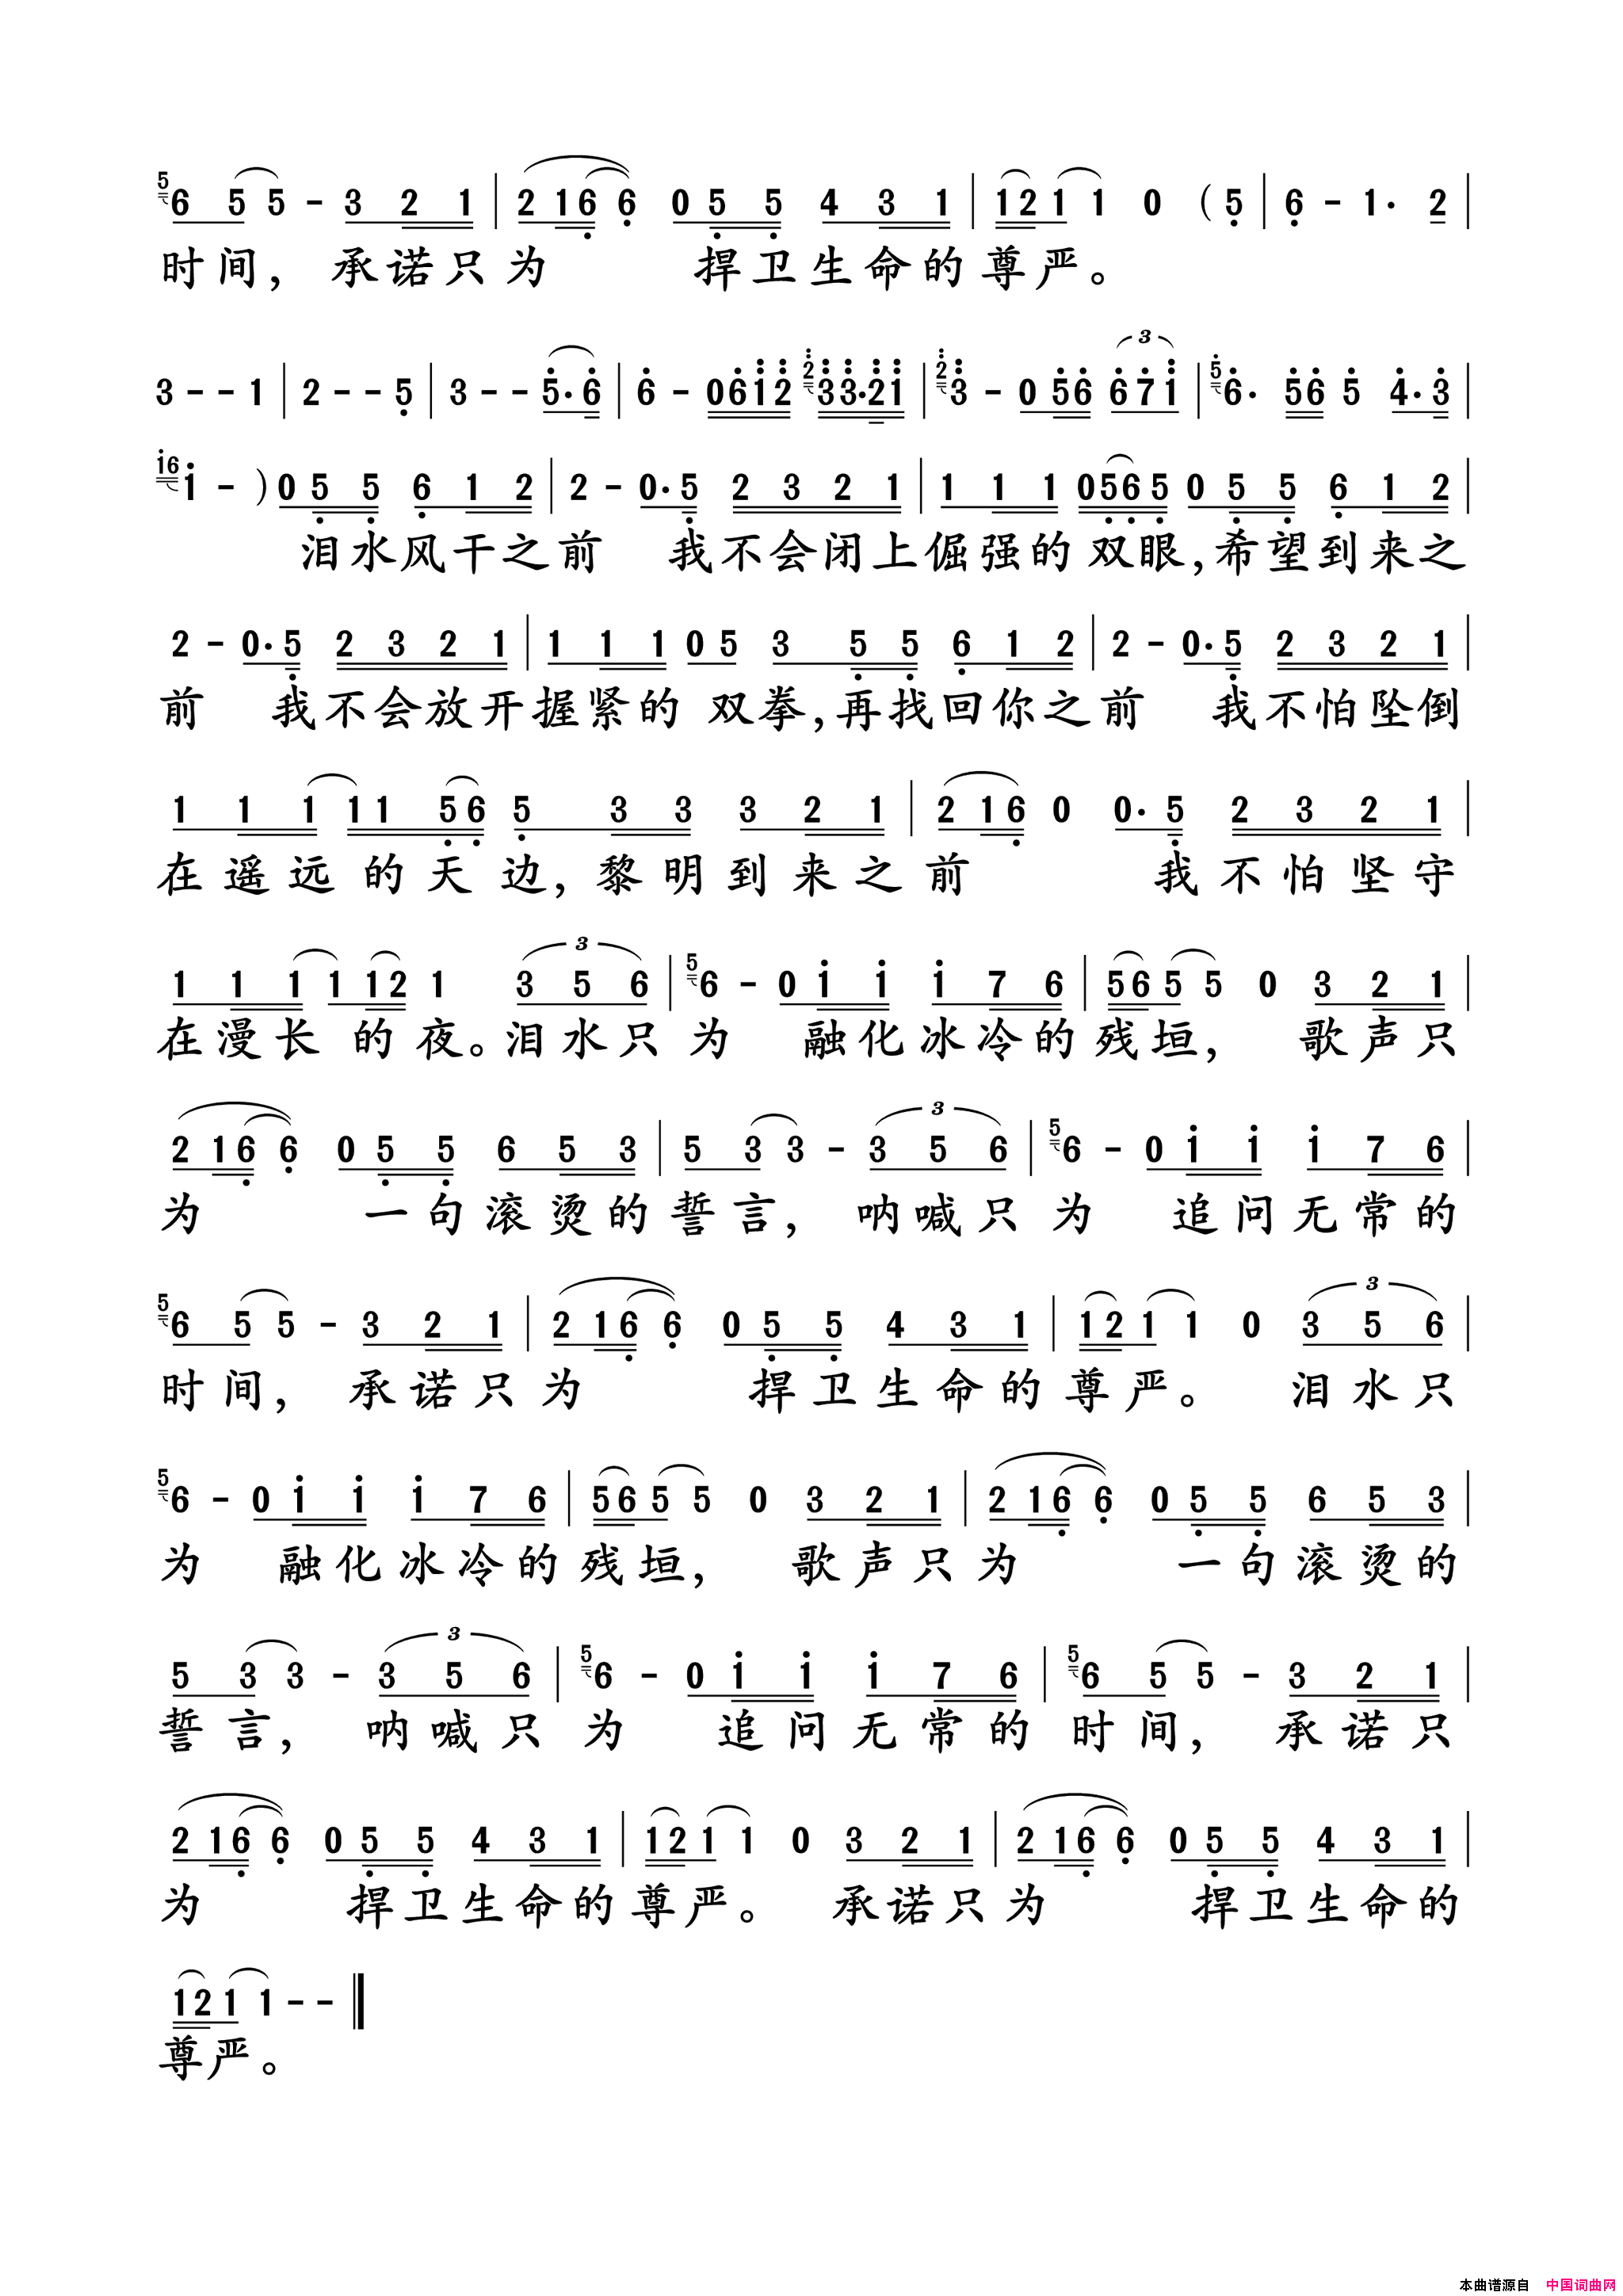 5 6 5 5 - 3 2 1 | 2 1 6 6 0 5 5 4 3 1 | 1 2 1 1 0 ( 5 | 6 - 1· 2 |
时间, 承诺只为 捍卫生命的尊严。
3 - - 1 | 2 - - 5 | 3 - - 5· 6 | 6 - 0 6 1 2 2 3 3· 2 1 | 2 3 - 0 5 6 3 6 7 1 | 5 6· 5 6 5 4· 3 |
1 6 1 - ) 0 5 5 6 1 2 | 2 - 0· 5 2 3 2 1 | 1 1 1 0 5 6 5 0 5 5 6 1 2 |
泪水风干之前 我不会闭上倔强的双眼,希望到来之
2 - 0· 5 2 3 2 1 | 1 1 1 0 5 3 5 5 6 1 2 | 2 - 0· 5 2 3 2 1 |
前 我不会放开握紧的 双拳,再找回你之前 我不怕坠倒
1 1 1 1 1 5 6 5 3 3 3 2 1 | 2 1 6 0 0· 5 2 3 2 1 |
在遥远的天边,黎明到来之前 我不怕坚守
1 1 1 1 1 2 1 3 3 5 6 | 5 6 - 0 1 1 1 7 6 | 5 6 5 5 0 3 2 1 |
在漫长的夜。泪水只为 融化冰冷的残垣, 歌声只
2 1 6 6 0 5 5 6 5 3 | 5 3 3 - 3 3 5 6 | 5 6 - 0 1 1 1 7 6 |
为 一句滚烫的誓言, 呐喊只为 追问无常的
5 6 5 5 - 3 2 1 | 2 1 6 6 0 5 5 4 3 1 | 1 2 1 1 0 3 3 5 6 |
时间, 承诺只为 捍卫生命的尊严。 泪水只
5 6 - 0 1 1 1 7 6 | 5 6 5 5 0 3 2 1 | 2 1 6 6 0 5 5 6 5 3 |
为 融化冰冷的残垣, 歌声只为 一句滚烫的
5 3 3 - 3 3 5 6 | 5 6 - 0 1 1 1 7 6 | 5 6 5 5 - 3 2 1 |
誓言, 呐喊只为 追问无常的时间, 承诺只
2 1 6 6 0 5 5 4 3 1 | 1 2 1 1 0 3 2 1 | 2 1 6 6 0 5 5 4 3 1 |
为 捍卫生命的尊严。 承诺只为 捍卫生命的
1 2 1 1 - - ‖
尊严。
本曲谱源自 中国词曲网